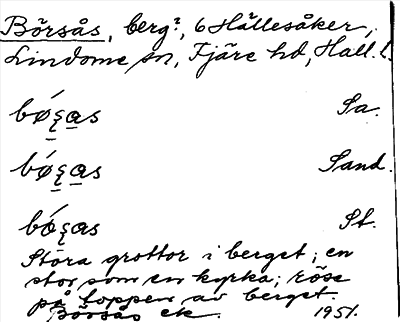 Börsås, berg?, 6 Hällesåker,
Lindome sn, Fjäre hd, Hall. l.
bó̱ʂa̱s Sa.
bó̱ʂa̱s Sand.
bóʂas St.
Stora grottor i berget; en
stor som en kyrka; röse
på toppen av berget.
Börsås ek. 1951.